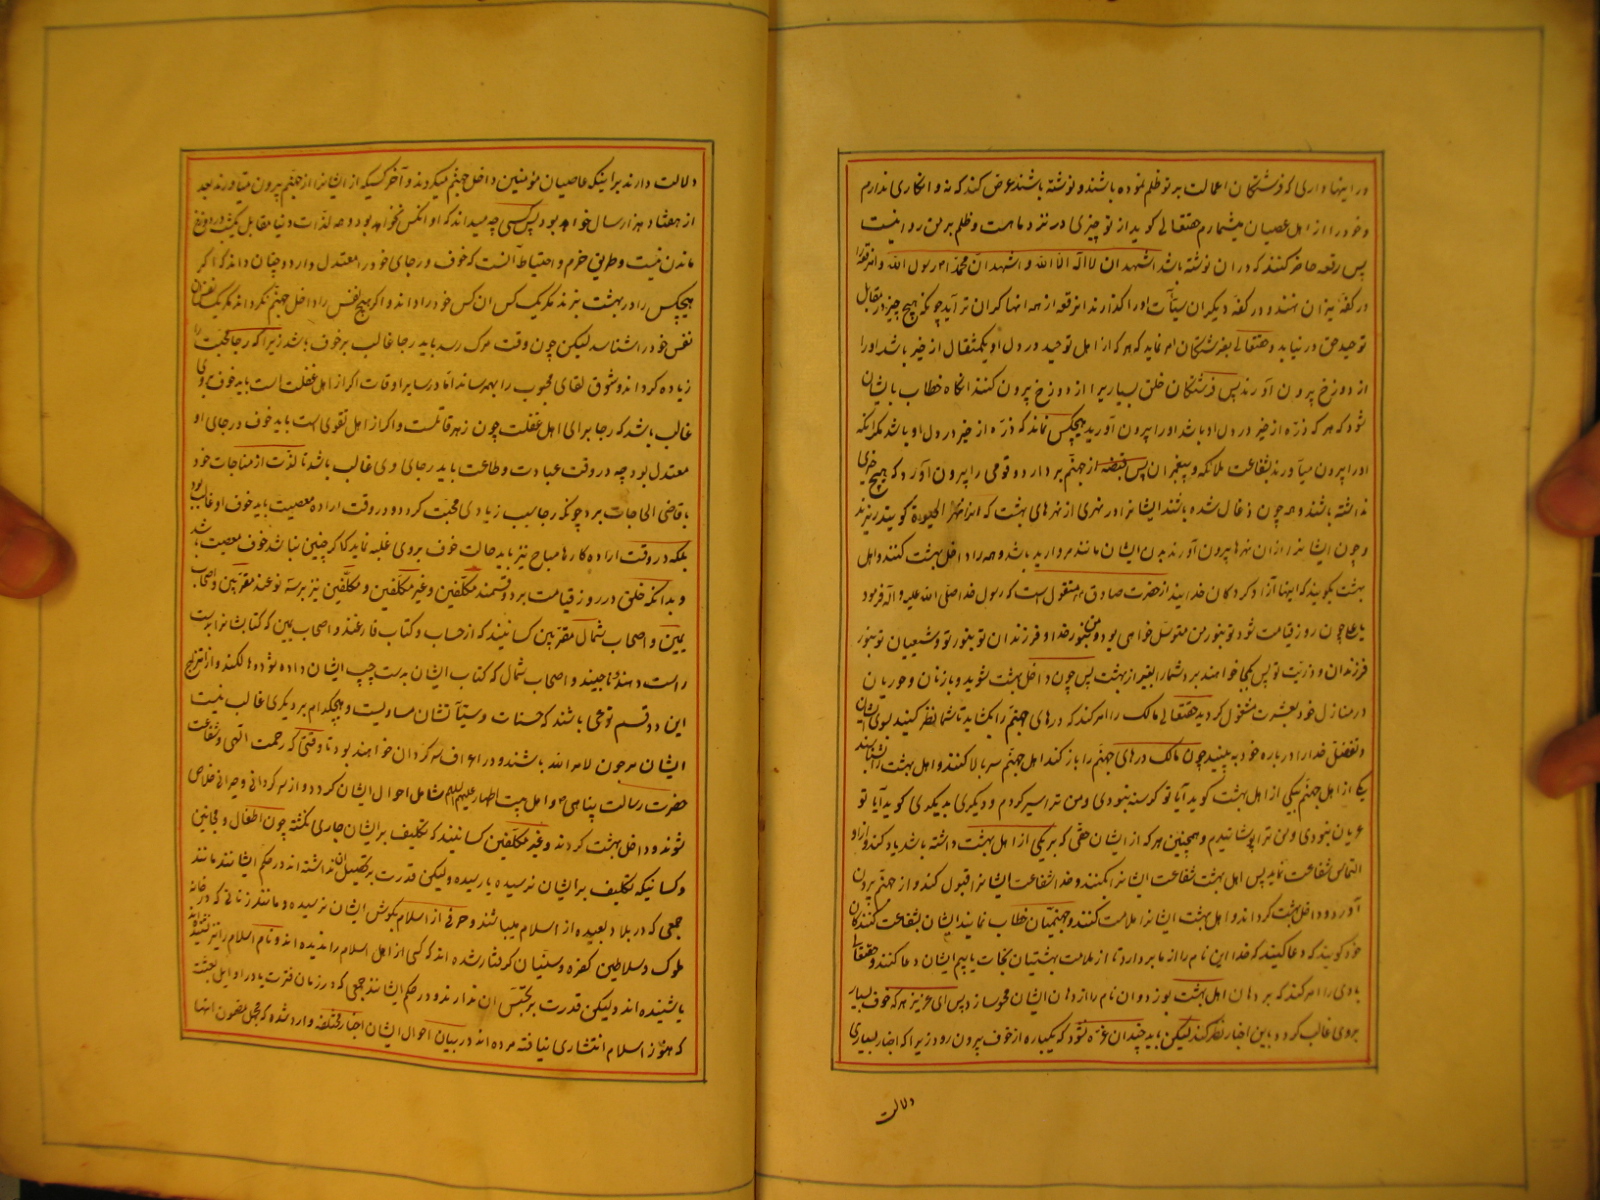 در اینها داری که فرشتکان اعمالت بر تو ظلم نموده باشند و نوشته باشند عرض کند که نه و انکاری ندارم
و خود را از اهل عصیان میشمارم حقتعالی کوید از تو چیزی در نزد ما هست و ظلم بر تو روا نیست
پس رقعه حاضر کنند که در ان نوشته باشد اشهد ان لا اله الا الله و اشهد ان محمدا رسول الله و انرقعه را
در کفهٔ میزان نهند و در کفهٔ دیکر ان سیئآت او را کذارند انرقعه از همه انها کران تر آید چونکه هیچ چیز در مقابل
توحید حق در نیاید حقتعالی بفرشتکان امر نماید که هر که از اهل توحید در دل او یکمثقال از خیر باشد او را
از دوزخ بیرون آورند پس فرشتکان خلق بسیاریرا از دوزخ بیرون کنند انکاه خطاب بایشان
شود که هر که ذرّه از خیر در دل او باشد او را بیرون آورید هیچکس نماند که ذرّه از خیر در دل او باشد مکر انکه
او را بیرون میآورند بشفاعت ملائکه و پیغمبران پس قبضه از جهنم بردارد و قومی را بیرون آورد که هیچ خیری
نداشته باشند و همه چون ذغال شده باشند ایشانرا در نهری از نهرهای بهشت که انرا نهر الحیوة کویند ریزند
و چون ایشانرا از ان نهرها بیرون آورند بدن ایشان مانند مروارید باشد و همه را داخل بهشت کنند و اهل
بهشت بکویند که اینها آزاد کردکان خدایند از حضرت صادق ع منقول است که رسول خدا صلی الله علیه و آله فرمود
یا علی چون روز قیامت شود تو بنور من متوسل خواهی بود و من بنور خدا و فرزندان تو بنور تو و شیعیان تو بنور
فرزندان و ذریّت تو پس بکجا خواهند برد شما را بغیر از بهشت پس چون داخل بهشت شوید و با زنان و حوریان
در منازل خود بعشرت مشغول کردید حقتعالی مالک را امر کند که درهای جهنم را بکشاید تا شما نظر کنید بسوی ایشان
و تفضل خدا را درباره خود به بینید چون مالک درهای جهنم را باز کند اهل جهنم سر بالا کنند و اهل بهشت را بشناسند
یکی از اهل جهنم بیکی از اهل بهشت کوید آیا تو کرسنه نبودی و من ترا سیر کردم و دیکری بدیکری کوید آیا تو
عریان نبودی و من ترا پوشانیدم و همچنین هر که از ایشان حقی که بر یکی از اهل بهشت داشته باشد یاد کند و از او
التماس شفاعت نماید پس اهل بهشت شفاعت ایشانرا بکنند و خدا شفاعت ایشانرا قبول کند و از جهنم بیرون
آورد و داخل بهشت کرداند و اهل بهشت ایشانرا ملامت کنند و جهنمیان خطاب نمایند ایشان بشفاعت کنندکان
خود کویند که دعا کنید که خدا این نام را از ما بردارد تا از ملامت بهشتیان نجات یابیم ایشان دعا کنند و حقتعالی
بادی را امر کند که بر دهان اهل بهشت بوزد و ان نام را از دهان ایشان محو سازد پس ای عزیز هر که خوف بسیار
بر وی غالب کردد باین اخبار نظر کند لیکن باید چندان غرّه نشود که یکباره از خوف بیرون رود زیرا که اخبار بسیاری
دلالت
دلالت دارند بر اینکه عاصیان مؤمنین داخل جهنم میکردند و آخر کسیکه از ایشانرا از جهنم بیرون میآورند بعد
از هفتاد هزار سال خواهد بود پس کسی چه میداند که او انکس نخواهد بود و همه لذات دنیا مقابل یکشب در دوزخ
ماندن نیست و طریق حزم و احتیاط آنست که خوف و رجای خود را معتدل دارد و چنان داند که اکر
هیچکس را در بهشت نبرند مکر یک کس ان کس خود را داند و اکر هیچ نفس را داخل جهنم نکرداند مکر یک نفس ان
نفس خود را شناسد لیکن چون وقت مرک رسد باید رجا غالب بر خوف باشد زیرا که رجا محبت را
زیاده کرداند و شوق لقای محبوب را بهمرساند اما در سایر اوقات اکر از اهل غفلت است باید خوف وی
غالب باشد که رجا برای اهل غفلت چون زهر قاتلست و اکر از اهل تقوی است باید خوف و رجای او
معتدل بود چه در وقت عبادت و طاعت باید رجای وی غالب باشد تا لذت از مناجات خود
با قاضی الحاجات برد چونکه رجا سبب زیادی محبت کردد و در وقت اراده معصیت باید خوف او غالب بود
بلکه در وقت اراده کارها مباح نیز باید حالت خوف بر وی غلبه نماید که اکر چنین نباشد خوف معصیت باشد
و بدانکه خلق در روز قیامت بر دو قسمند مکلفین و غیر مکلفین و مکلفین نیز بر سه نوعند مقربین و اصحاب
یمین و اصحاب شمال مقربین کسانیند که از حساب و کتاب فارغند و اصحاب یمین که کتابشانرا بدست
راست دهند و ناجیند و اصحاب شمال که کتاب ایشان بدست چپ ایشان داده شود و هالکند و از امتزاج
این دو قسم نوعی باشند که حسنات و سیئآتشان مساویست و هیچکدام بر دیکری غالب نیست
ایشان مرجون لامر الله باشند و در اعراف سرکردان خواهند بود تا وقتی که رحمت الهی و شفاعت
حضرت رسالت پناهی ص و اهل بیت اطهار علیهم السلام شامل احوال ایشان کردد و از سرکردانی و حیرانی خلاص
شوند و داخل بهشت کردند و غیر مکلفین کسانیند که تکلیف بر ایشان جاری نکشته چون اطفال و مجانین
و کسانیکه تکلیف بر ایشان نرسیده یا رسیده ولیکن قدرت بر تحصیل ان نداشته اند در حکم ایشانند مانند
جمعی که در بلاد بعیده از اسلام میباشند و حرفی از اسلام بکوش ایشان نرسیده و مانند زنانی که در خانه
ملوک و سلاطین کفره و سنیان کرفتار شده اند که کسی از اهل اسلام را ندیده اند و نام اسلام را نیز نشنیده اند
یا شنیده اند ولیکن قدرت بر تجسّس ان ندارند و در حکم ایشانند جمعی که در زمان فترت یا در اوایل بعثت
که هنوز اسلام انتشاری نیافته مرده اند در بیان احوال ایشان اخبار مختلفه وارد شده که مجمل مضمون انها